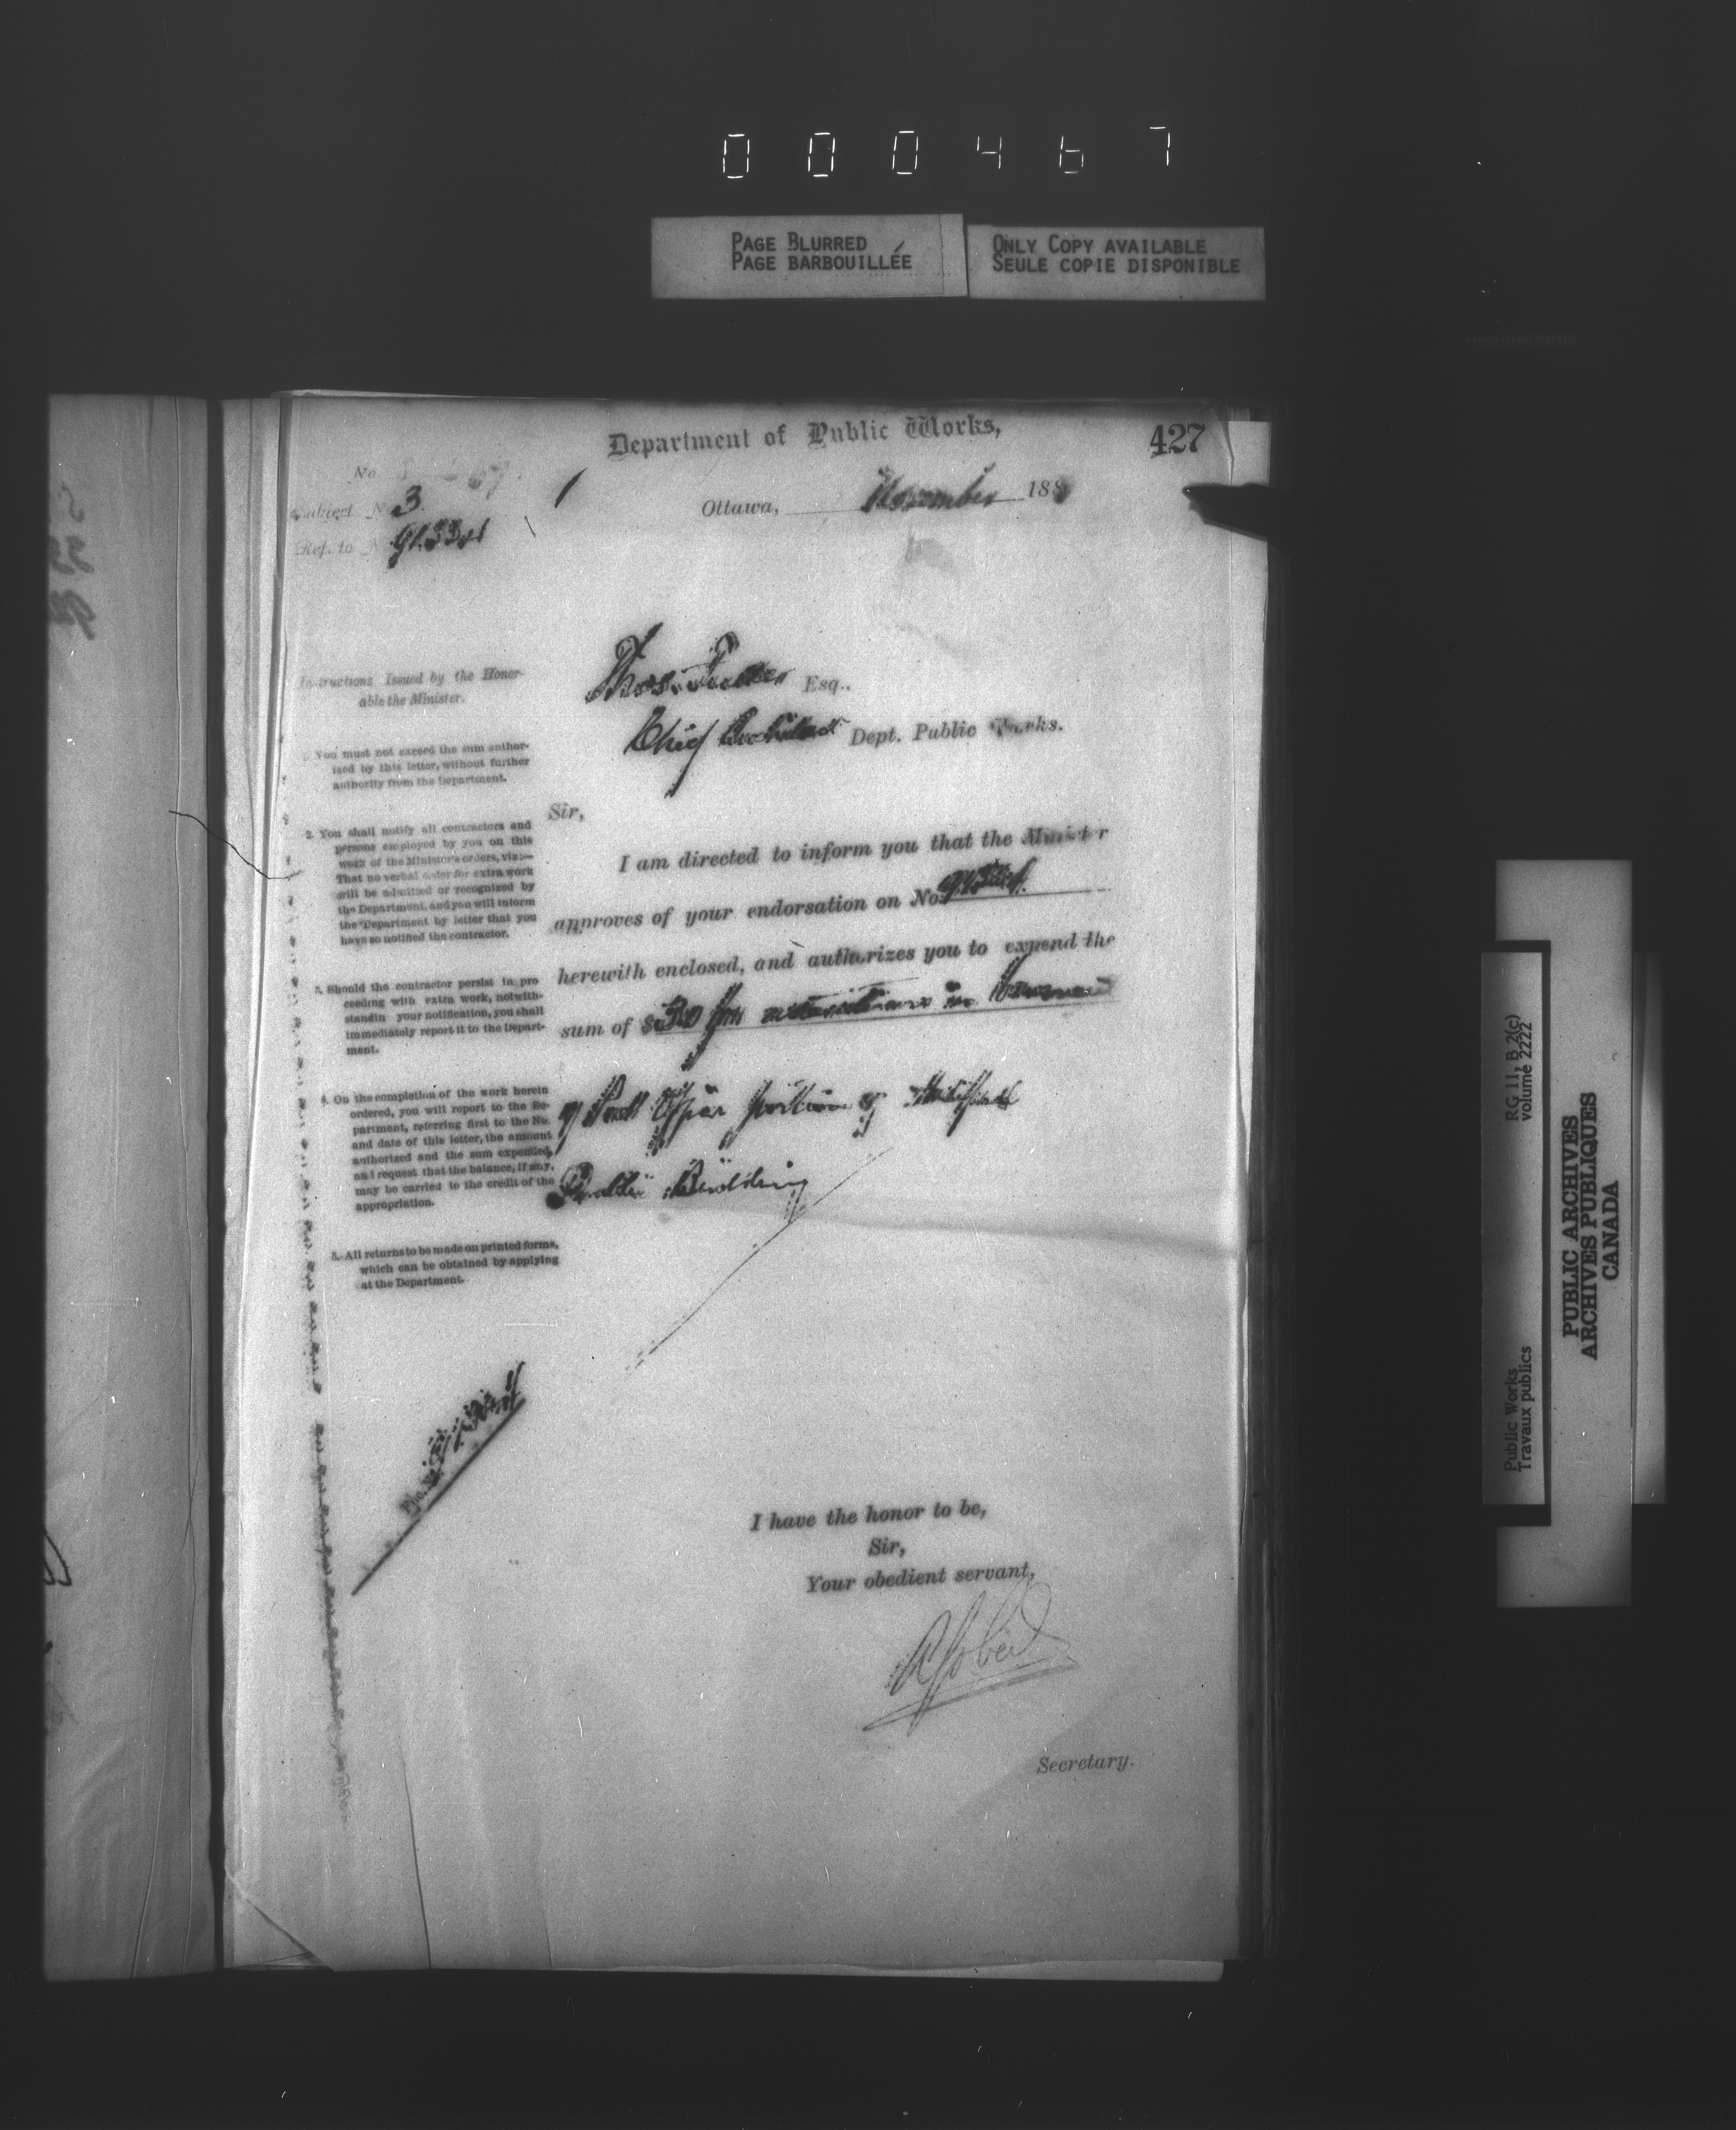 000467
PAGE BLURRED
PAGE BARBOUILLÉE
ONLY COPY AVAILABLE
SEULE COPIE DISPONIBLE
Department of Public Works,
427
No
Subject No 3
Ref. to No
Ottawa, November 188
Instructions Issued by the Honor-
able the Minister.
You must not exceed the sum author-
ized by this letter, without further
authority from the Department.
2. You shall notify all contractors and
persons employed by you on this
work of the Minister's orders, viz:—
That no verbal order for extra work
will be admitted or recognized by
the Department, and you will inform
the Department by letter that you
have so notified the contractor.
3. Should the contractor persist in pro
ceeding with extra work, notwith-
standin your notification, you shall
immediately report it to the Depart-
ment.
4. On the completion of the work herein
ordered, you will report to the De-
partment, referring first to the No.
and date of this letter, the amount
authorized and the sum expended,
and request that the balance, if any,
may be carried to the credit of the
appropriation.
5. All returns to be made on printed forms,
which can be obtained by applying
at the Department.
Thos. Fuller Esq..
Chief Architect Dept. Public Works.
Sir,
I am directed to inform you that the Minister
approves of your endorsation on No.
herewith enclosed, and authorizes you to expend the
sum of $ for alterations in
of Post Office portion of
Public Building
I have the honor to be,
Sir,
Your obedient servant,
A Gobeil
Secretary.
Public Works
Travaux publics
RG 11, B 2(c)
volume 2222
PUBLIC ARCHIVES
ARCHIVES PUBLIQUES
CANADA